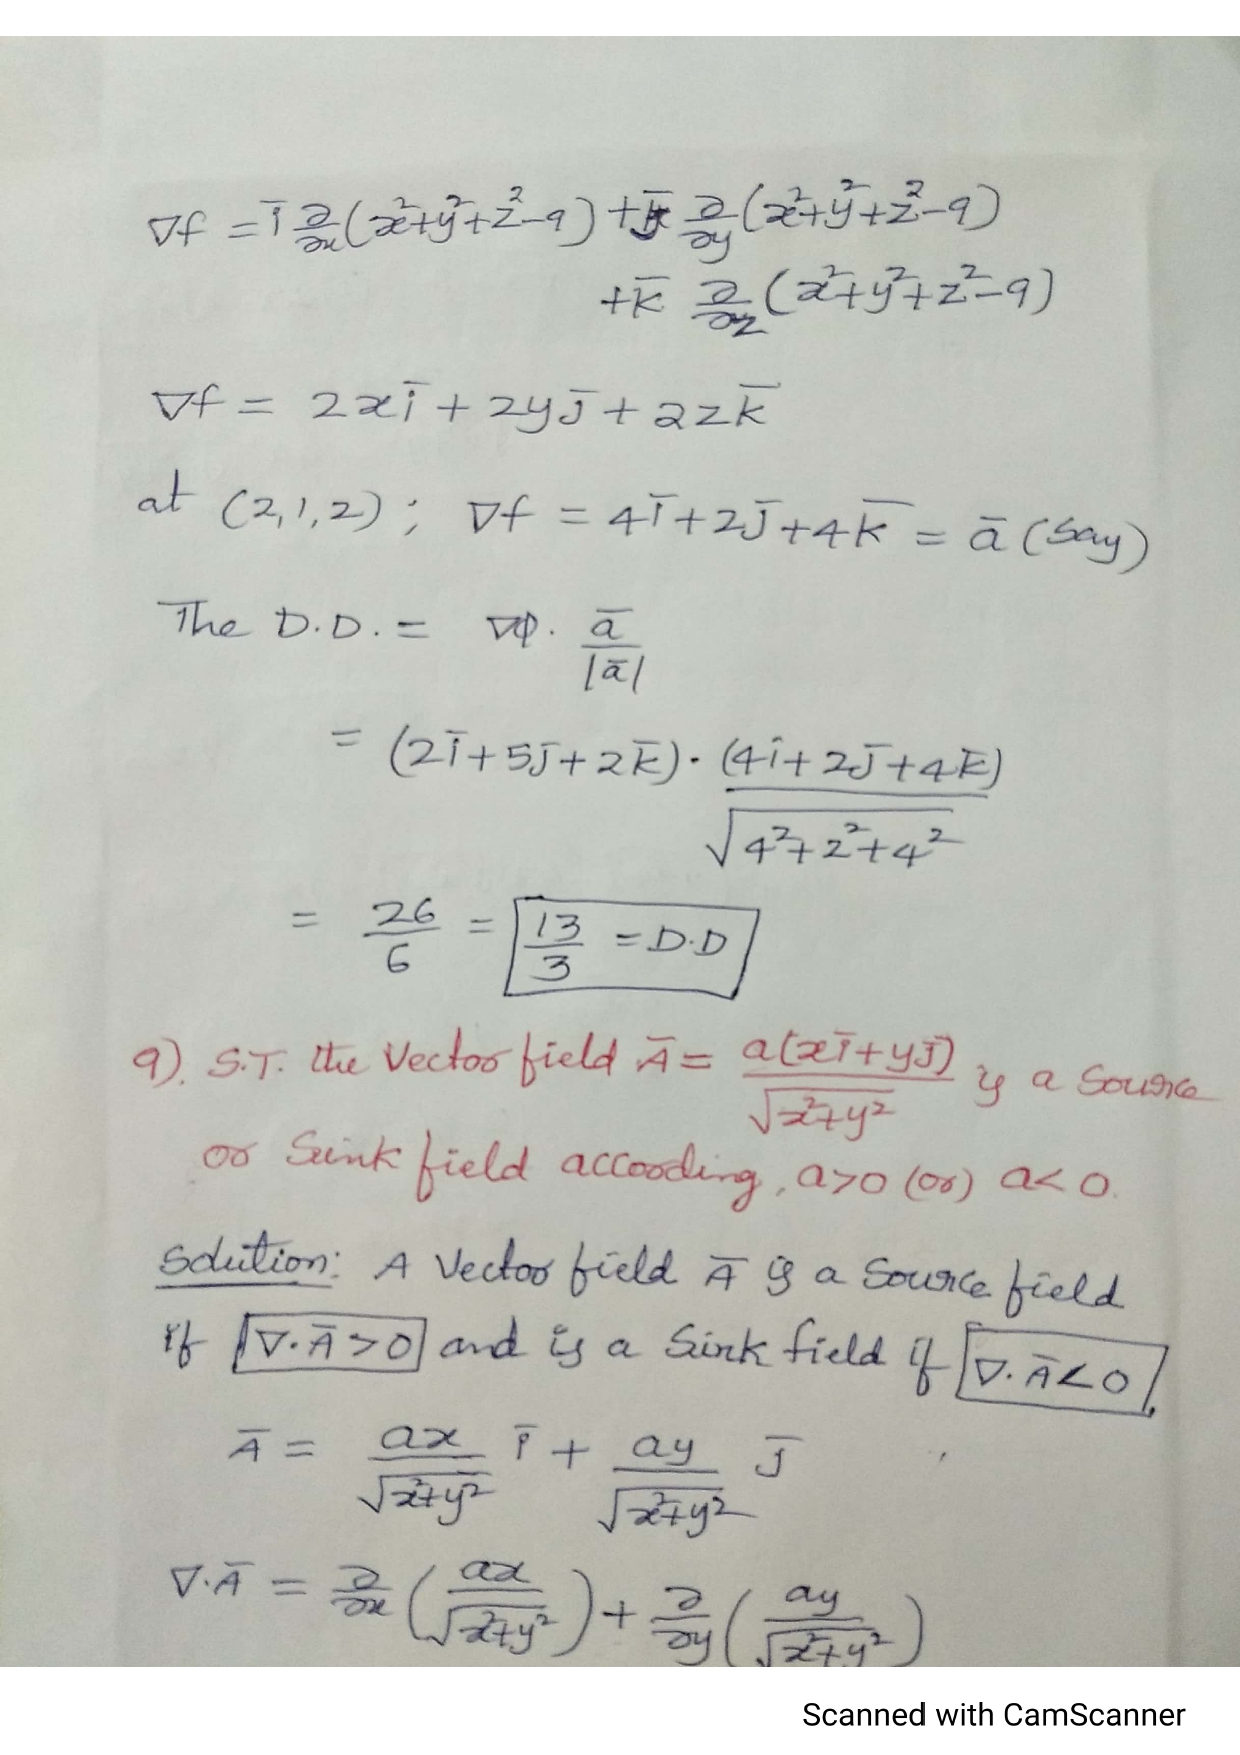 ∇f = ī ∂/∂x (x²+y²+z²-9) + j̄ ∂/∂y (x²+y²+z²-9)
+ k̄ ∂/∂z (x²+y²+z²-9)
∇f = 2xī + 2yj̄ + 2zk̄
at (2,1,2); ∇f = 4ī+2j̄+4k̄ = ā (say)
The D.D. = ∇φ. ā/|ā|
= (2ī+5j̄+2k̄)·(4i+2j̄+4k̄)/√(4²+2²+4²)
= 26/6 = 13/3 = D.D
9). S.T. the Vector field Ā = a(xī+yj̄)/√(x²+y²) is a Source
or Sink field according, a>0 (or) a<0.
Solution: A Vector field Ā is a Source field
if ∇.Ā>0 and is a Sink field if ∇.Ā<0
Ā = ax/√(x²+y²) ī + ay/√(x²+y²) j̄
∇.Ā = ∂/∂x (ax/√(x²+y²)) + ∂/∂y (ay/√(x²+y²))
Scanned with CamScanner